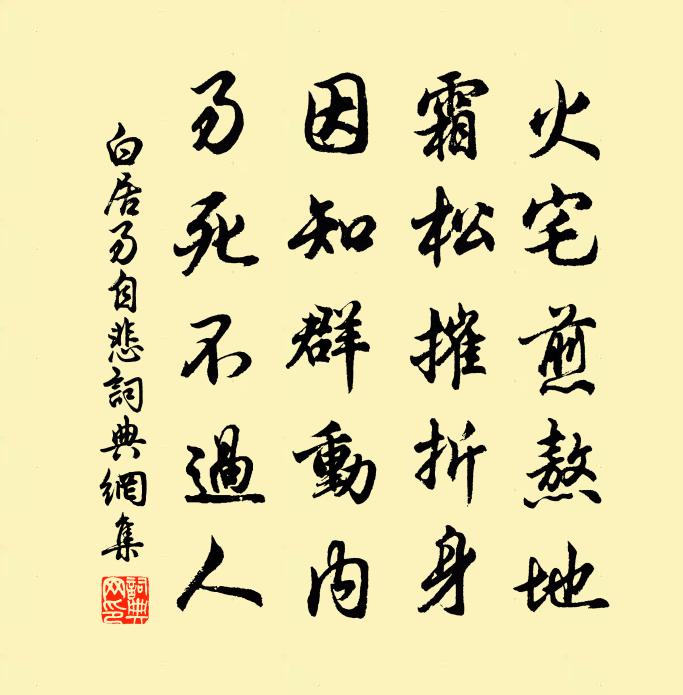 火宅煎熬地
霜松摧折身
因知群動內
易死不過人
白居易自悲詞典網集
詞典網印